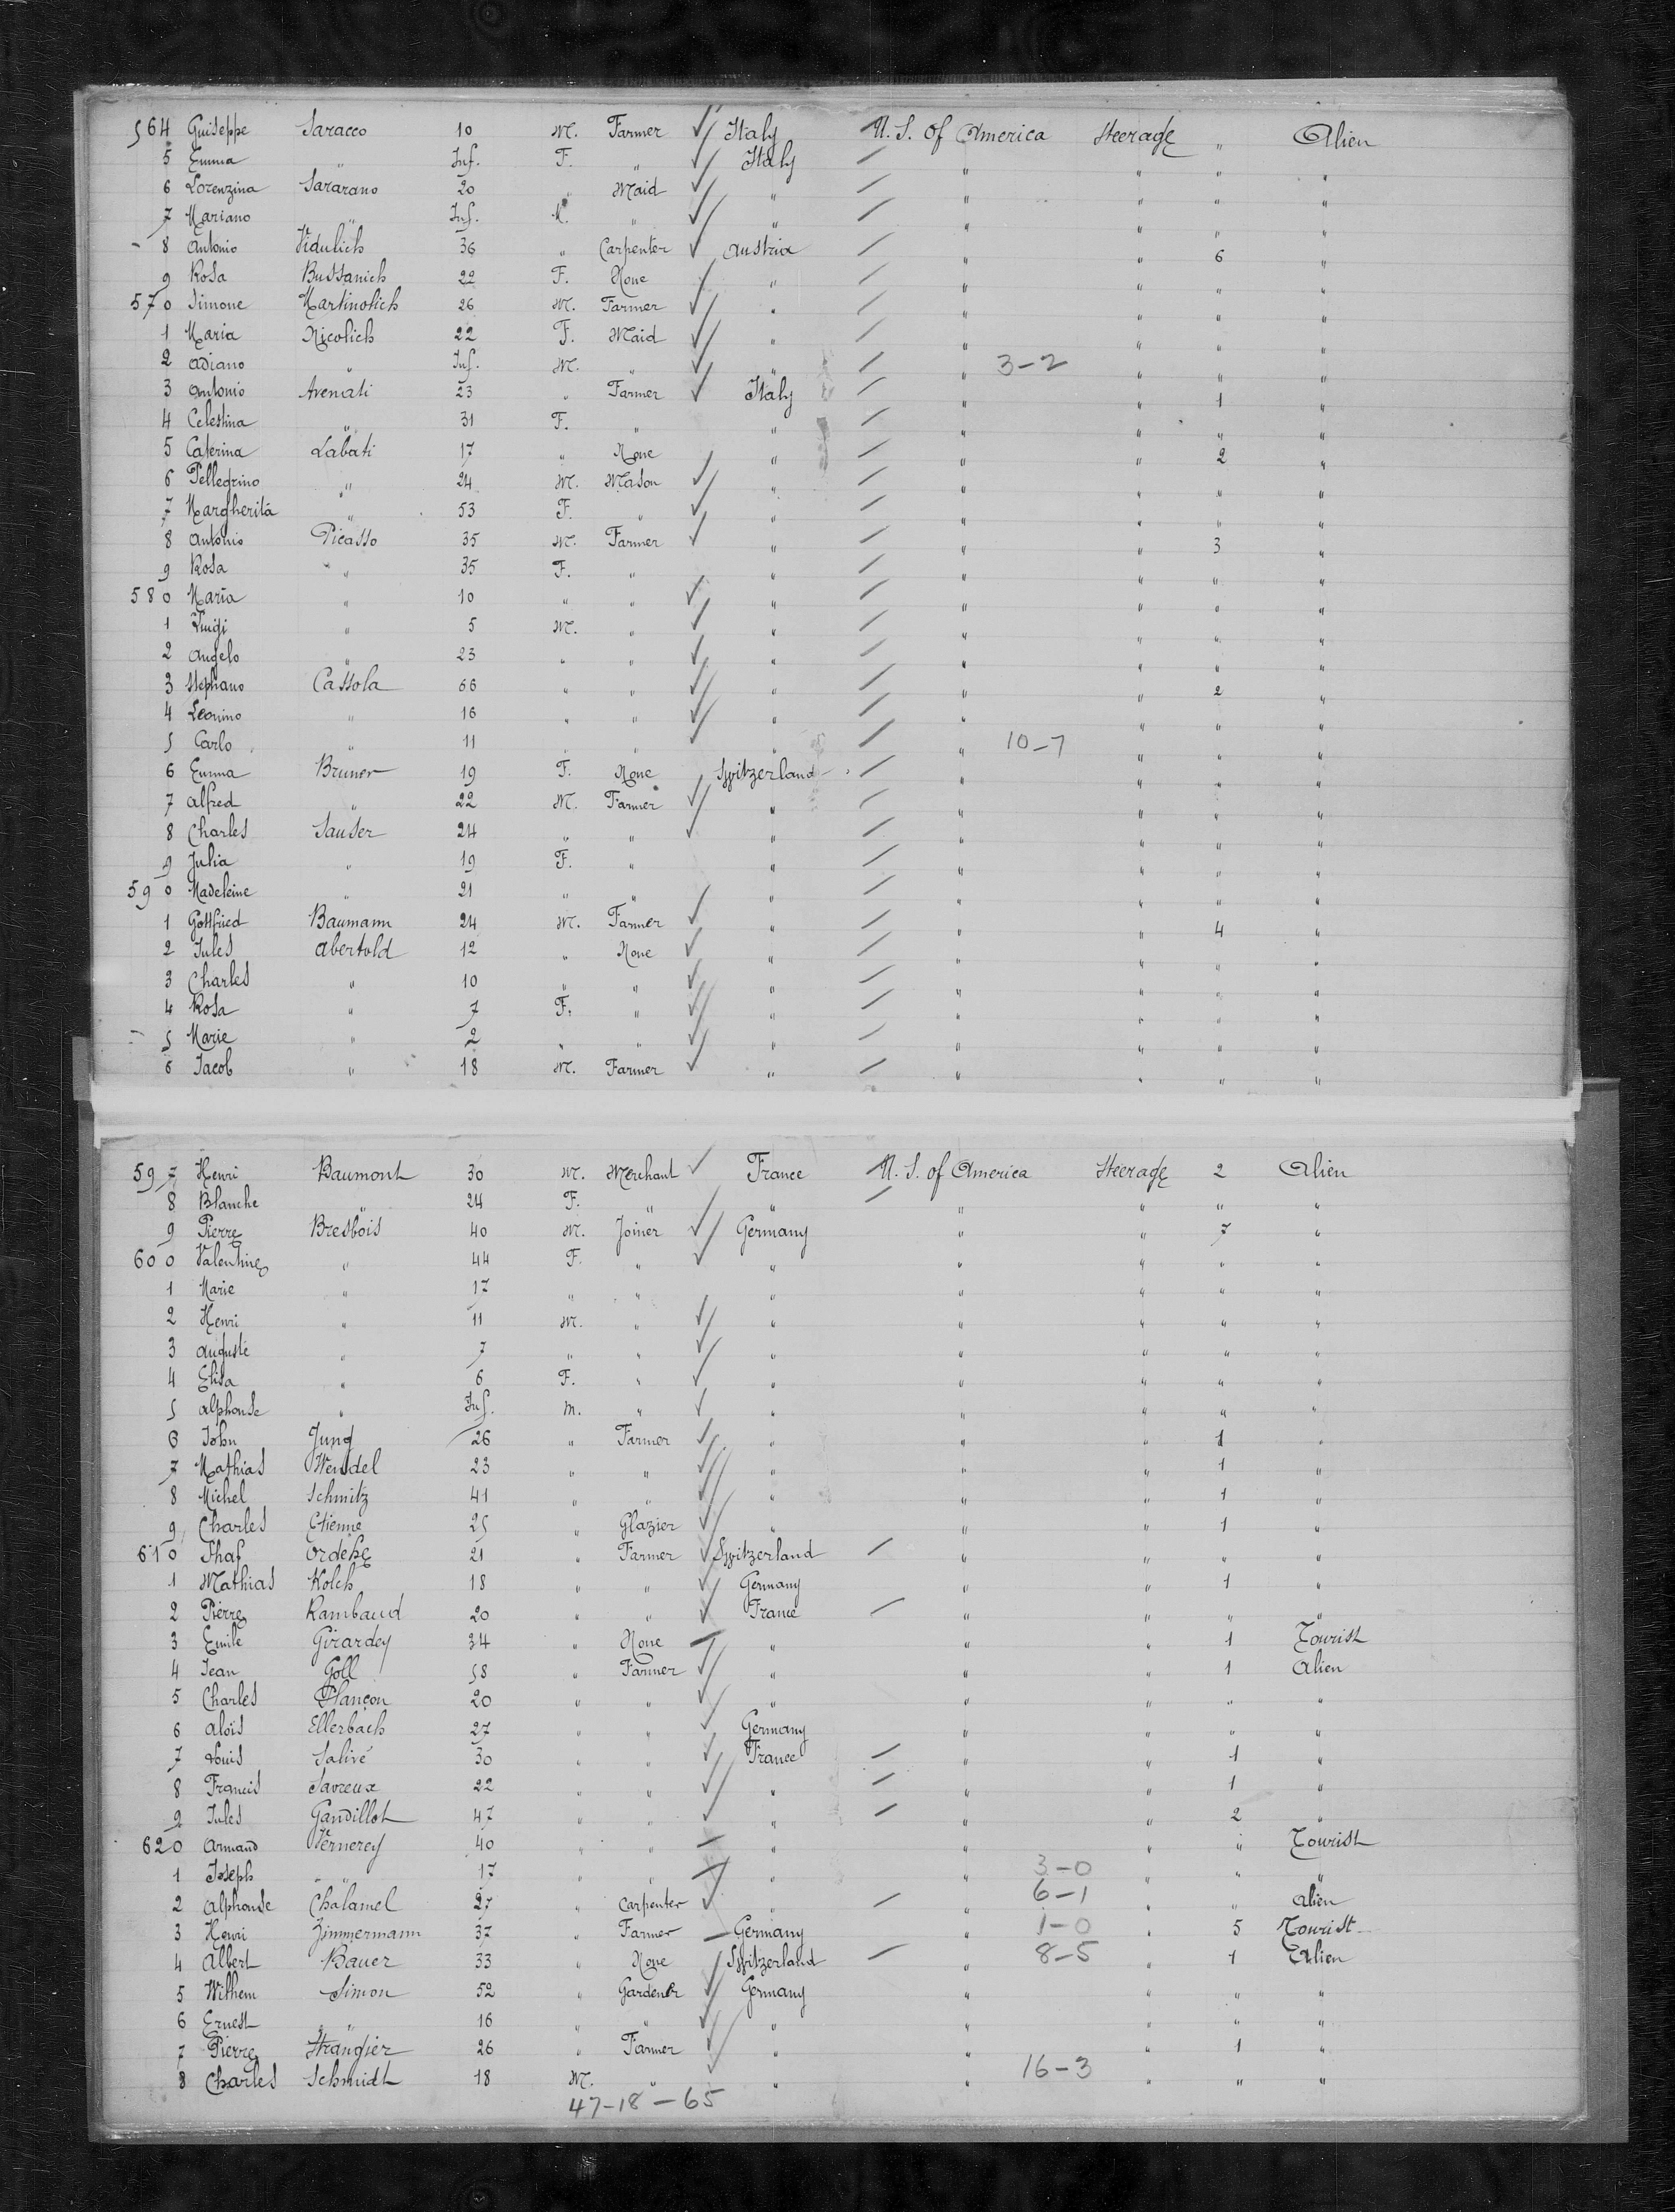 564 Guiseppe Saracco 10 M. Farmer Italy U. S. of America Steerage " Alien
5 Emma " Inf. F. " Italy " " " "
6 Lorenzina Sararano 20 " Maid " " " " "
7 Mariano " Inf. M. " " " " " "
8 Antonio Vidulich 36 " Carpenter Austria " " 6 "
9 Rosa Bussanich 22 F. None " " " " "
570 Simone Martinolich 26 M. Farmer " " " " "
1 Maria Nicolich 22 F. Maid " " " " "
2 Adiano " Inf. M. " " " 3-2 " " "
3 Antonio Avenati 23 " Farmer Italy " " 1 "
4 Celestina " 31 F. " " " " " "
5 Caterina Labati 17 " None " " " 2 "
6 Pellegrino " 24 M. Mason " " " " "
7 Margherita " 53 F. " " " " " "
8 Antonio Picasso 35 M. Farmer " " " 3 "
9 Rosa " 35 F. " " " " " "
580 Maria " 10 " " " " " " "
1 Luigi " 5 M. " " " " " "
2 Angelo " 23 " " " " " " "
3 Stephano Cassola 66 " " " " " 2 "
4 Leonino " 16 " " " " " " "
5 Carlo " 11 " " " " 10-7 " " "
6 Emma Bruner 19 F. None Switzerland " " " "
7 Alfred " 22 M. Farmer " " " " "
8 Charles Sauser 24 " " " " " " "
9 Julia " 19 F. " " " " " "
590 Madeleine " 21 " " " " " " "
1 Gottfried Baumann 24 M. Farmer " " " 4 "
2 Jules Abertold 12 " None " " " " "
3 Charles " 10 " " " " " " "
4 Rosa " 7 F. " " " " " "
5 Marie " 2 " " " " " " "
6 Jacob " 18 M. Farmer " " " " "
597 Henri Baumont 30 M. Merchant France U. S. of America Steerage 2 Alien
8 Blanche " 24 F. " " " " " "
9 Pierre Bresbois 40 M. Joiner Germany " " 7 "
600 Valentine " 44 F. " " " " " "
1 Marie " 17 " " " " " " "
2 Henri " 11 M. " " " " " "
3 Auguste " 7 " " " " " " "
4 Elisa " 6 F. " " " " " "
5 Alphonse " Inf. m. " " " " " "
6 John Jung 26 " Farmer " " " 1 "
7 Mathias Wendel 23 " " " " " 1 "
8 Michel Schmitz 41 " " " " " 1 "
9 Charles Etienne 25 " Glazier " " " 1 "
610 Shaf Ordehe 21 " Farmer Switzerland " " " "
1 Mathias Kolch 18 " " Germany " " 1 "
2 Pierre Rambaud 20 " " France " " " "
3 Emile Girardey 34 " None " " " 1 Tourist
4 Jean Goll 58 " Farmer " " " 1 Alien
5 Charles Plançon 20 " " " " " " "
6 Aloïs Ellerbach 27 " " Germany " " " "
7 Louis Salivé 30 " " France " " 1 "
8 Francis Savreux 22 " " " " " 1 "
9 Jules Gandillot 47 " " " " " 2 "
620 Armand Vernerey 40 " " " " " " Tourist
1 Joseph " 17 " " " " 3-0 " " "
2 Alphonse Chalamel 27 " Carpenter " " 6-1 " " Alien
3 Henri Zimmermann 37 " Farmer Germany " 1-0 " 5 Tourist
4 Albert Bauer 33 " None Switzerland " 8-5 " 1 Alien
5 Wilhem Simon 52 " Gardener Germany " " " "
6 Ernest " 16 " " " " " " "
7 Pierre Strangier 26 " Farmer " " " 1 "
8 Charles Schmidt 18 M. " " " 16-3 " " "
47-18-65